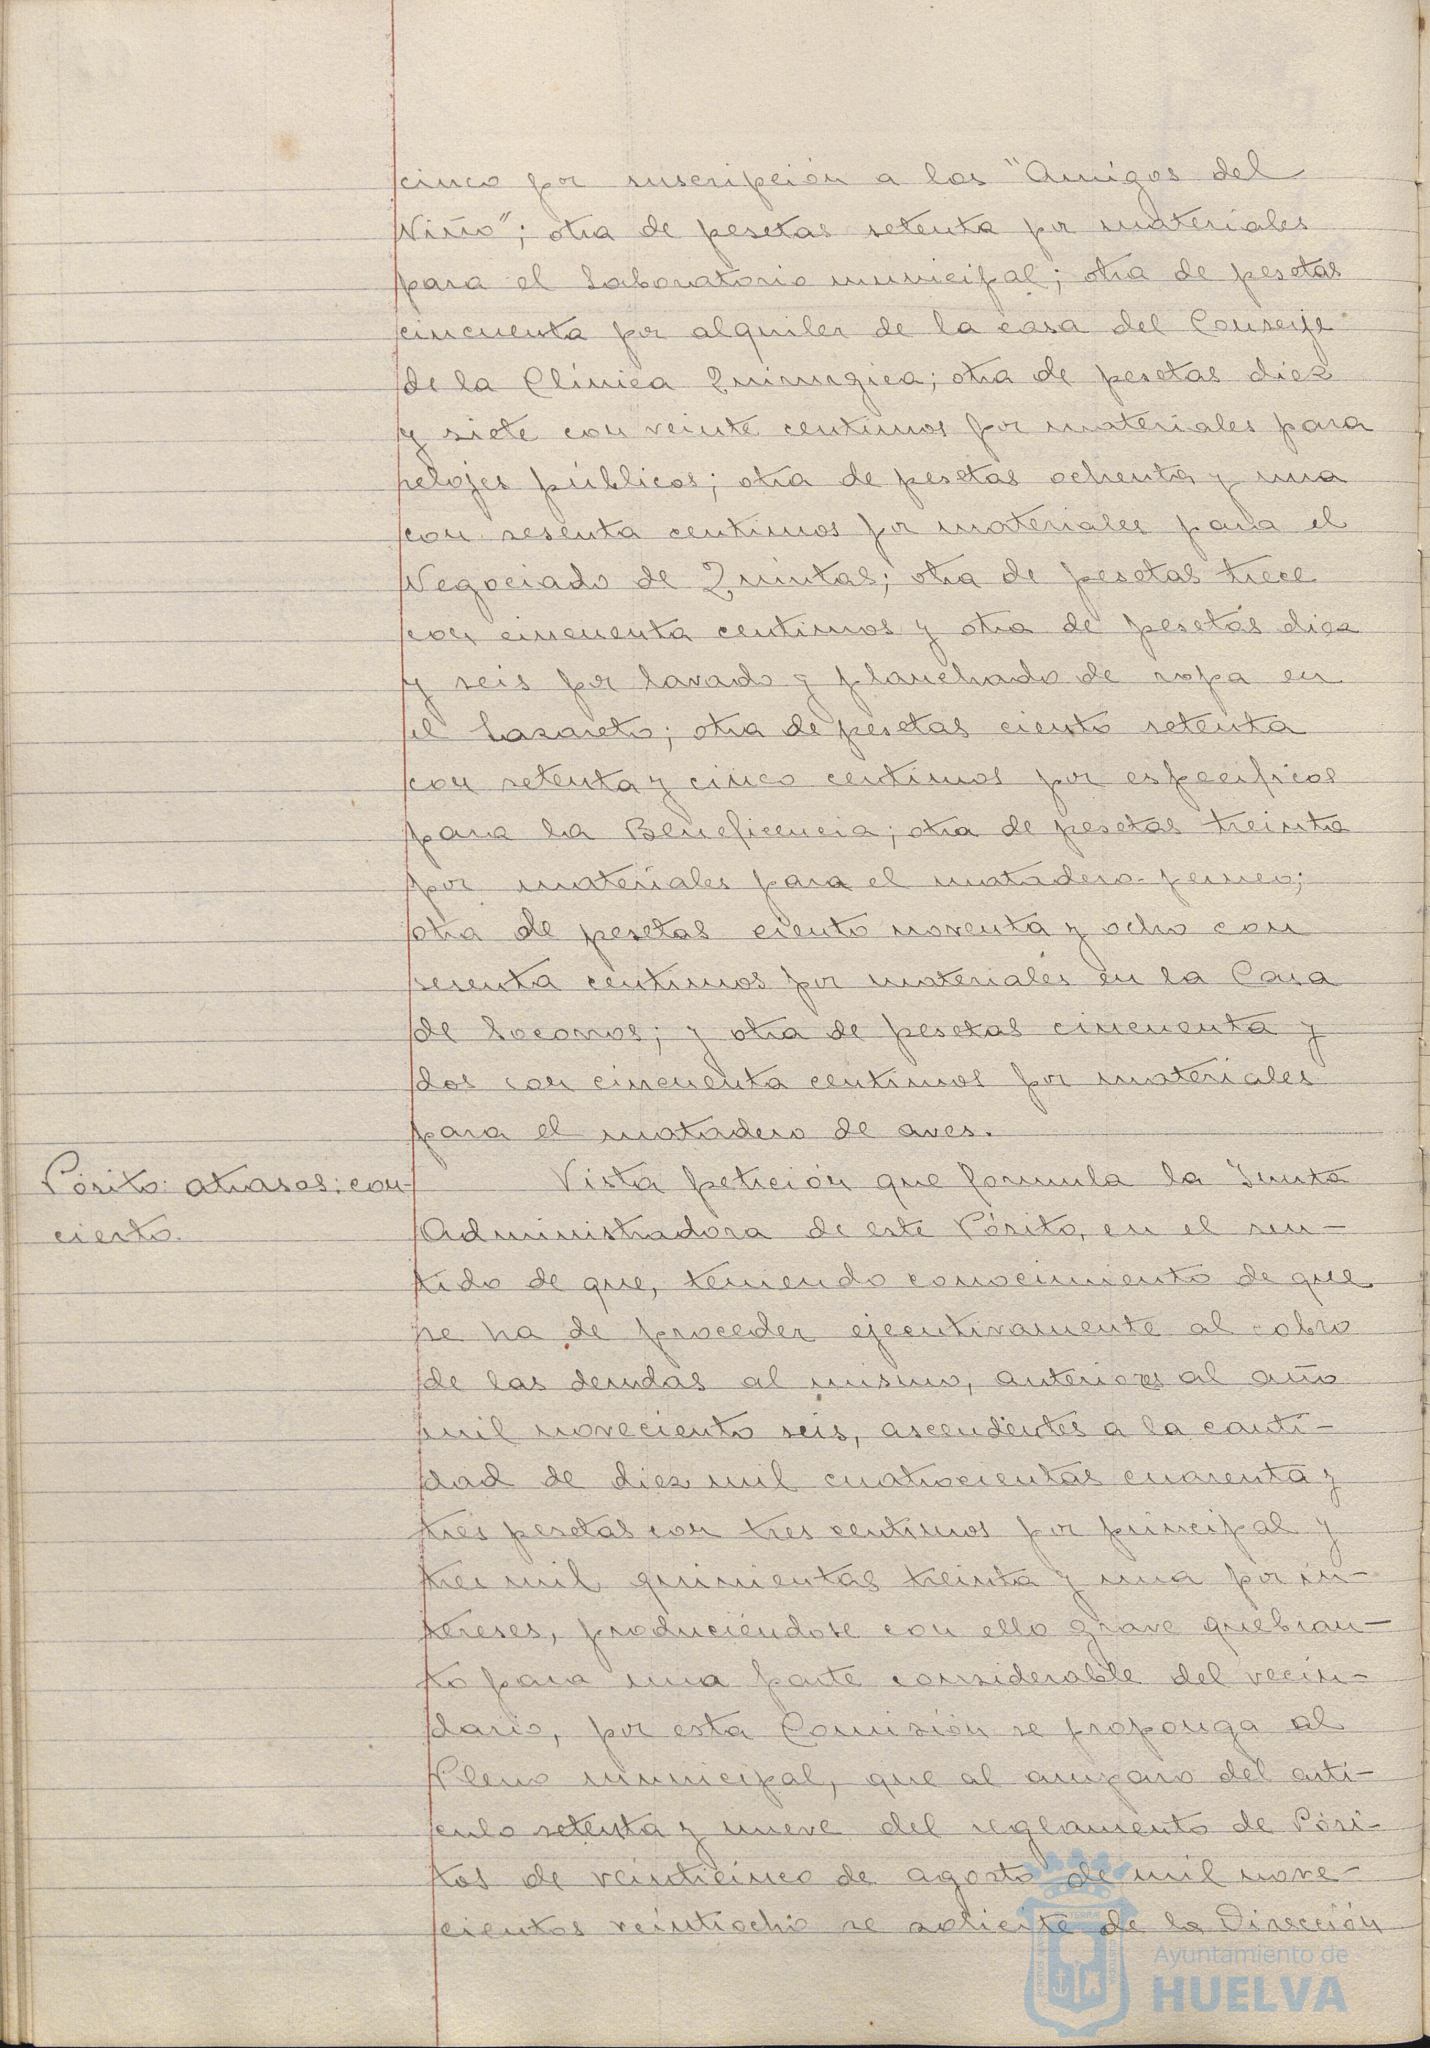 cinco por suscripción a los "Amigos del
Niño"; otra de pesetas setenta por materiales
para el Laboratorio municipal; otra de pesetas
cincuenta por alquiler de la casa del Conserje
de la Clínica Quirurgica; otra de pesetas diez
y siete con veinte centimos por materiales para
relojes públicos; otra de pesetas ochenta y una
con sesenta centimos por materiales para el
Negociado de Quintas; otra de pesetas trece
con cincuenta centimos y otra de pesetas diez
y seis por lavado y planchado de ropa en
el Lazareto; otra de pesetas ciento setenta
con setenta y cinco centimos por especificos
para la Beneficencia; otra de pesetas treinta
por materiales para el matadero perneo;
otra de pesetas ciento noventa y ocho con
sesenta centimos por materiales en la Casa
de Socorros; y otra de pesetas cincuenta y
dos con cincuenta centimos por materiales
para el matadero de aves.
Pósito: atrasos: con-
cierto.
Vista petición que formula la Junta
Administradora de este Pósito, en el sen-
tido de que, teniendo conocimiento de que
se ha de proceder ejecutivamente al cobro
de las deudas al mismo, anteriores al año
mil noveciento seis, ascendentes a la canti-
dad de diez mil cuatrocientas cuarenta y
tres pesetas con tres centimos por principal y
tres mil quinientas treinta y una por in-
tereses, produciéndose con ello grave quebran-
to para una parte considerable del vecin-
dario, por esta Comisión se proponga al
Pleno municipal, que al amparo del arti-
culo setenta y nueve del reglamento de Pósi-
tos de veinticinco de agosto de mil nove-
cientos veintiocho se solicite de la Dirección
Ayuntamiento de
HUELVA